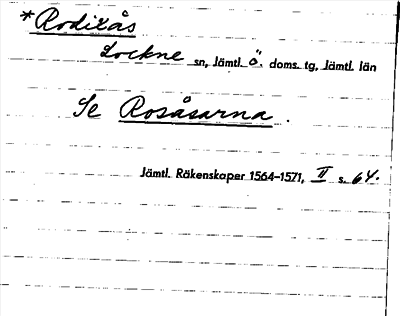 *Rodikås
Lockne sn, Jämtl. Ö. doms. tg, Jämtl. län
Se Rosåsarna.
Jämtl. Räkenskaper 1564-1571, II s. 64.